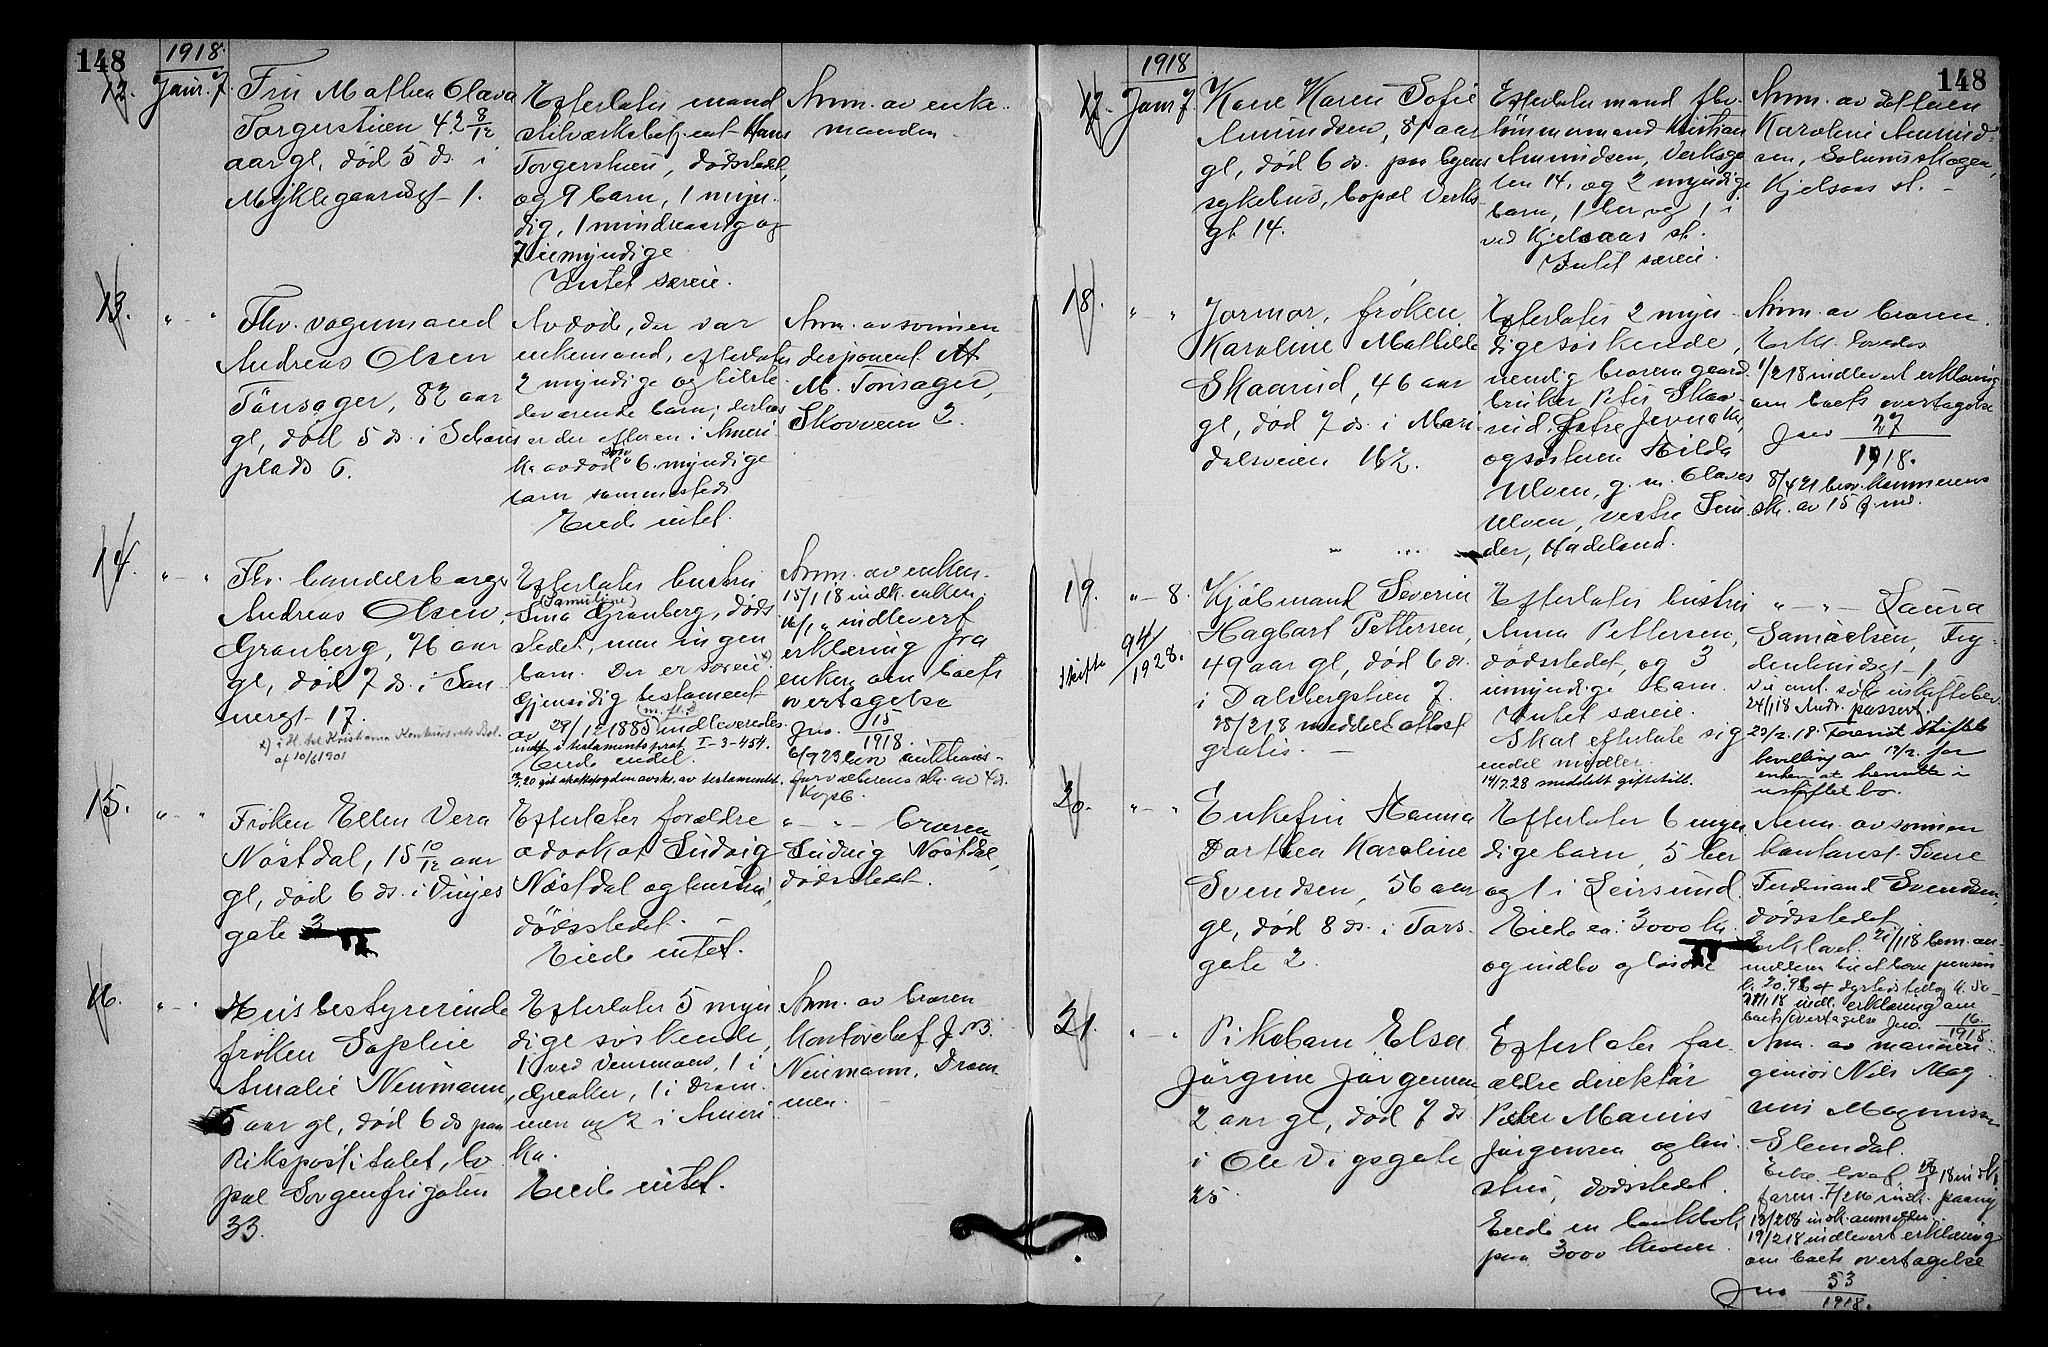 148
1918.
12. Janr. 7.
Fru Mathea Olava
Torgerstuen 42 8/12
aar gl, død 5 ds. i
Myklegaardsgt 1.
Efterlater mand
Hans
Torgerstuen, dødsstedet,
og 9 barn, 1 myn-
dig, 1 mindreaarig og
7 umyndige
Intet særeie.
Anm. av enke-
manden.
13. " - "
Fhv. vognmand
Andreas Olsen
Tönsager, 82 aar
gl, död 5 ds. i Schous
plads 6.
Avdöde, der var
enkemand, efterlater
2 myndige og tilste-
deværende barn; derhos
er der efter en i Ameri-
ka avdöd sön 6 myndige
barn sammesteds
Eiede intet.
Anm. av sönnen
disponent
M. Tönsager,
Skovveien 2.
14. " - "
Fhv. handelsborger
Andreas Olsen
Granberg, 76 aar
gl, död 7 ds. i San-
nergt 17.
x) i H. t. Kristiania
af 10/6 1901
Efterlater hustru
Sina Granberg, döds-
stedet, men ingen
barn. Der er særeie x)
Gjensidig testament
av 29/12 1885 indleveredes
i testamentsprot. I-3-454.
Eiede endel.
Anm. av enken.
15/1 18 indk. enken.
16/1 " indlevert
erklæring fra
enken om boets
overtagelse
Jno. 15/1918.
15. " - "
Fröken Ellen Vera
Nöstdal, 15 10/12 aar
gl, död 6 ds. i Vinjes
gate 3
Efterlater forældre
advokat Ludvig
Nöstdal og hustru,
dödsstedet.
Eiede intet.
" - " - broren
Ludvig Nöstdal,
dödsstedet.
16. " - "
Husbestyrerinde
fröken Sophie
Amalie Neumann,
aar gl, död 6 ds paa
Rikshospitalet, bo-
pæl Sorgenfrigaten
33.
Efterlater 5 myn-
dige söskende,
1 ved 1 i
Greaker, 1 i Dram-
men og 2 i Ameri-
ka.
Eiede intet.
Anm. av broren
Kontorchef J. B.
Neumann, Dram-
men.
148
1918
17. Janr 7.
Kone Karen Sofie
Amundsen, 81 aar
gl, död 6 ds. paa byens
sykehus, bopæl Verks-
gt 14.
Efterlater mand fhv.
tömmermand Kristian
Amundsen, Verksga-
ten 14, og 2 myndige
barn, 1 her og 1
ved Kjelsaas st.
Intet særeie.
Anm. av datteren
Karoline Amund-
sen, Solemskogen,
Kjelsaas st.
18. " - "
Jormor, fröken
Karoline Mathilde
Skaarud, 46 aar
gl, död 7 ds. i Mari-
dalsveien 162.
Efterlater 2 myn-
dige söskende,
nemlig broren gaard-
bruker Peter Skaa-
rud, Jevnaker,
og sösteren Hilda
Ulven, g. m. Olaves
Ulven, vestre
Hadeland.
Anm. av broren.
1/2 18 indlevert erklæring
om boets overtagelse
Jno 27/1918.
19. " - 8.
Skifte 94/1928.
Kjöbmand Severin
Hagbart Pettersen,
49 aar gl, död 6 ds.
i Dalsbergstien 7.
28/2 18 meddelt attest
gratis.
Efterlater hustru
Anna Pettersen,
dödsstedet, og 3
umyndige barn.
Intet særeie.
Skal efterlate sig
endel midler.
14/7 28 meddelt
" - " - Laura
Samuelsen,
1
24/1 18 passert.
23/2.18. Forevist skifteb-
bevilling av 19/2. for
enken at hensitte i
uskiftet bo.
20. " - "
Enkefru Hanna
Dorthea Karoline
Svendsen, 56 aar
gl, död 8 ds. i Tors-
gate 2.
Efterlater 6 myn-
dige barn, 5 her
og 1 i Leirsund.
Eiede ca. 3000 kr.
og indbo og lösöre
Anm. av sönnen
kontorist
Ferdinand Svendsen,
dödsstedet.
indl. erklæring om
boets overtagelse Jno. 16/1918
21. " - "
Pikebarn Elsa
Jörgine Jörgensen,
2 aar gl, död 7 ds
i Ole Vigsgate
25.
Efterlater for-
ældre direktör
Peter Marius
Jörgensen og hu-
stru, dödsstedet.
Eiede en bankbok
paa 3000 kroner.
Anm. av
geniör Nils Mag-
nus Magnussen
Slemdal.
19/2 18 indlevert erklæring
om boets overtagelse
Jno 53/1918.